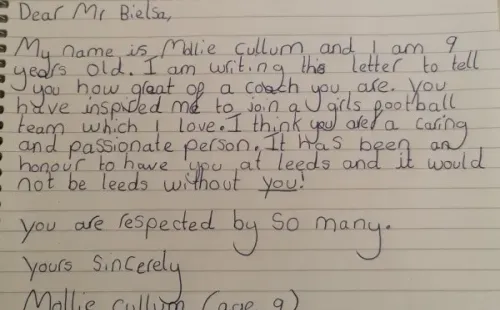 Dear Mr Bielsa,
My name is Mollie Cullum and I am 9
years old. I am writing this letter to tell
you how great of a coach you are. You
have inspired me to join a girls football
team which I love. I think you are a caring
and passionate person. It has been an
honour to have you at leeds and it would
not be leeds without you!
You are respected by so many.
Yours Sincerely
Mollie Cullum (age 9)